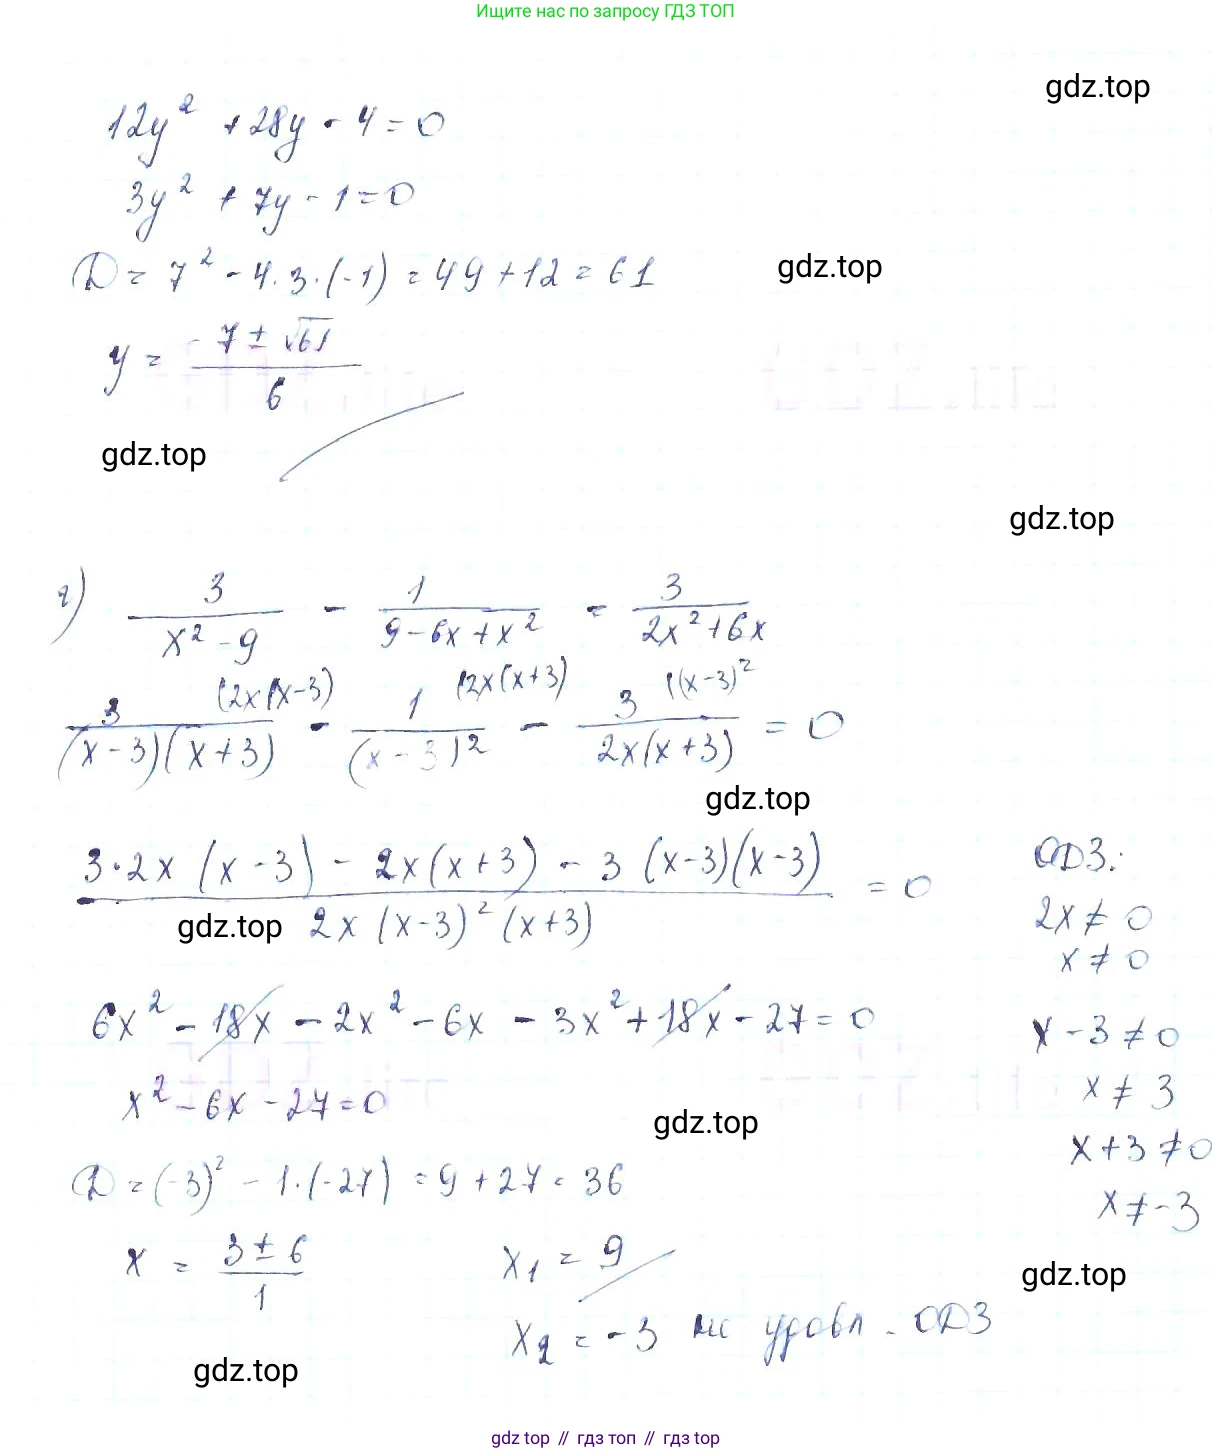 Ищите нас по запросу ГДЗ ТОП
gdz.top
12y² + 28y - 4 = 0
3y² + 7y - 1 = 0
D = 7² - 4·3·(-1) = 49 + 12 = 61
gdz.top
y = (-7 ± √61)/6
gdz.top
gdz.top
г) 3/(x² - 9) - 1/(9 - 6x + x²) = 3/(2x² + 6x)
3/((x-3)(x+3)) (2x(x-3) - 1/(x-3)² (2x(x+3) - 3/(2x(x+3)) ((x-3)² = 0
gdz.top
(3·2x(x-3) - 2x(x+3) - 3(x-3)(x-3))/(2x(x-3)²(x+3)) = 0
gdz.top
6x² - 18x - 2x² - 6x - 3x² + 18x - 27 = 0
x² - 6x - 27 = 0
gdz.top
D = (-3)² - 1·(-27) = 9 + 27 = 36
x = (3 ± 6)/1
x₁ = 9
x₂ = -3 не удовл. ОДЗ
ОДЗ:
2x ≠ 0
x ≠ 0
x - 3 ≠ 0
x ≠ 3
x + 3 ≠ 0
x ≠ -3
gdz.top
gdz.top
gdz top // гдз топ // гдз top